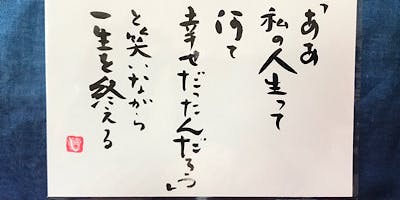 「ああ
私の人生って
何て
幸せだったんだろう」
と笑いながら
一生を終える